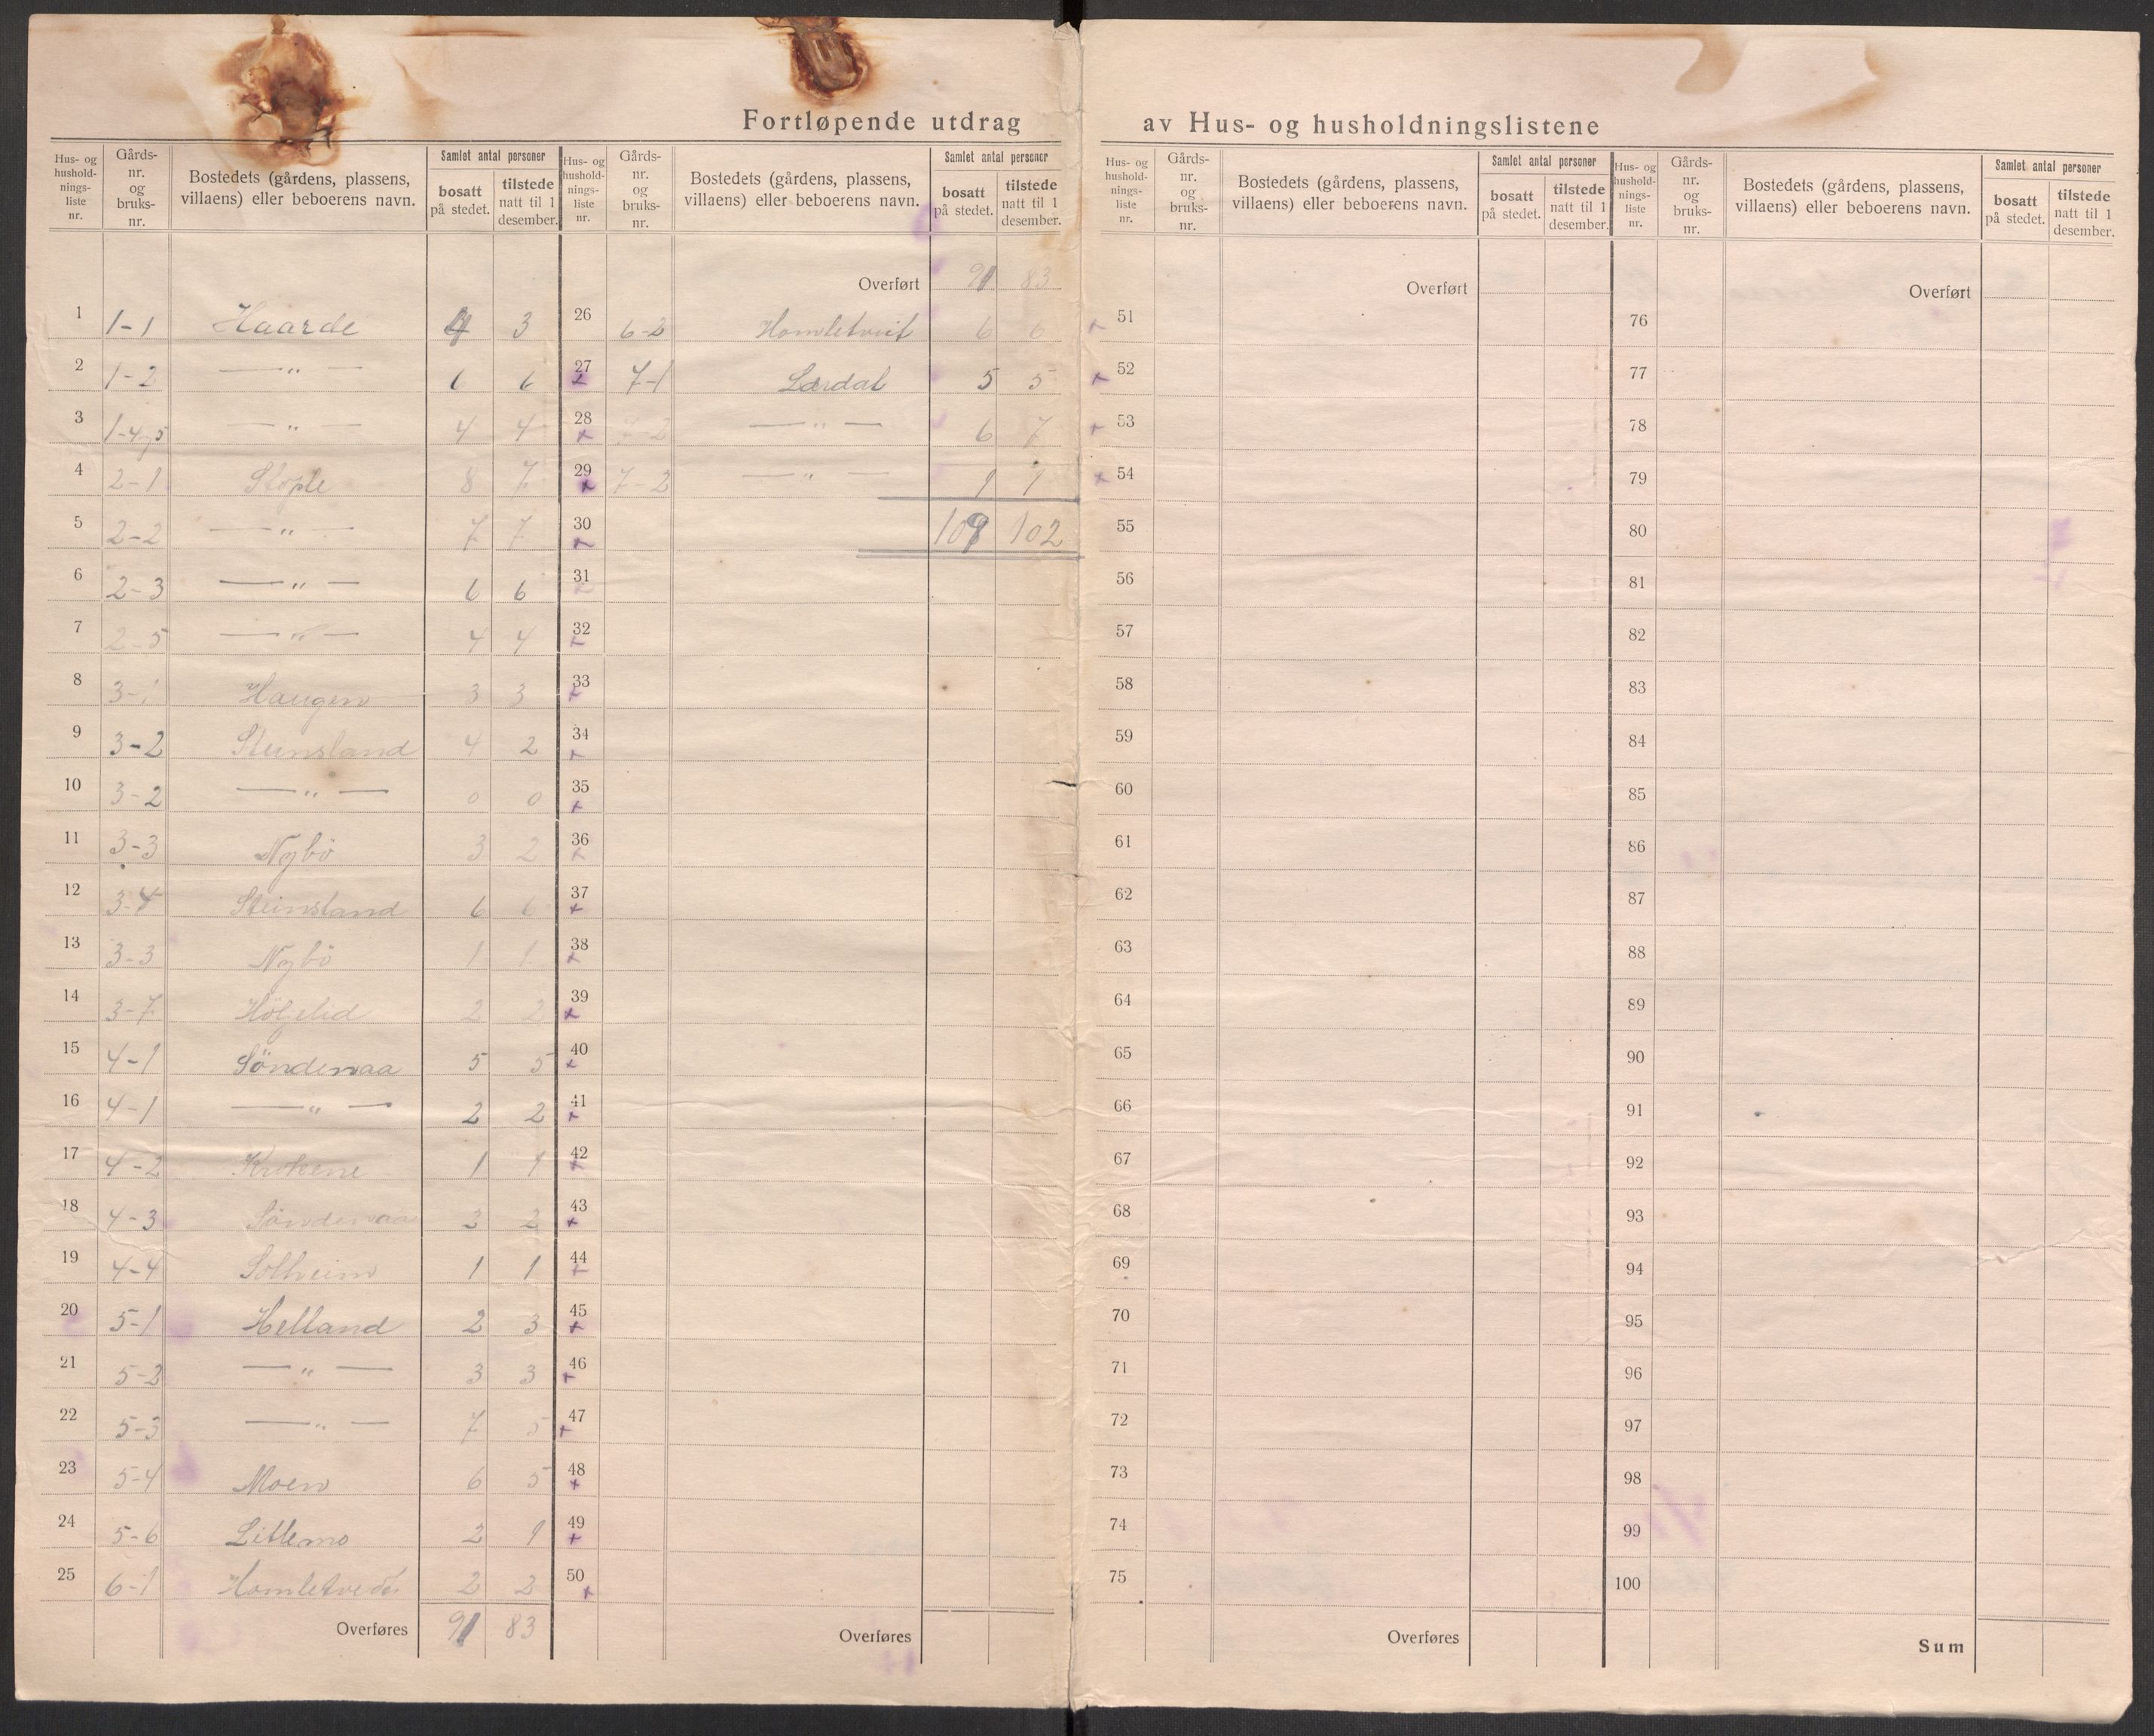 Fortløpende utdrag av Hus- og husholdningslistene
Hus- og hushold- nings- liste nr. | Gårds- nr. og bruks- nr. | Bostedets (gårdens, plassens, villaens) eller beboerens navn. | Samlet antal personer | bosatt på stedet. | tilstede natt til 1 desember.
1 1-1 Haarde 4 3
2 1-2 —„— 6 6
3 1-4,5 —„— 4 4
4 2-1 Stople 8 7
5 2-2 —„— 7 7
6 2-3 —„— 6 6
7 2-5 —„— 4 4
8 3-1 Haugen 3 3
9 3-2 Steinsland 4 2
10 3-2 —„— 0 0
11 3-3 Nybö 3 2
12 3-4 Steinsland 6 6
13 3-3 Nybö 1 1
14 3-7 2 2
15 4-1 Söndenaa 5 5
16 4-1 —„— 2 2
17 4-2 Krokene 1 1
18 4-3 Söndenaa 3 2
19 4-4 Solheim 1 1
20 5-1 Helland 2 3
21 5-2 —„— 3 3
22 5-3 —„— 7 5
23 5-4 Moen 6 5
24 5-6 Litlemo 2 1
25 6-1 2 2
Overføres 91 83
Hus- og hushold- nings- liste nr. | Gårds- nr. og bruks- nr. | Bostedets (gårdens, plassens, villaens) eller beboerens navn. | Samlet antal personer | bosatt på stedet. | tilstede natt til 1 desember.
Overført 91 83
26 6-2 Homletveit 6 6
27 7-1 Lærdal 5 5
28 7-2 —„— 6 7
29 7-2 —„— 1 1
30 109 102
31
32
33
34
35
36
37
38
39
40
41
42
43
44
45
46
47
48
49
50
Overføres
Hus- og hushold- nings- liste nr. | Gårds- nr. og bruks- nr. | Bostedets (gårdens, plassens, villaens) eller beboerens navn. | Samlet antal personer | bosatt på stedet. | tilstede natt til 1 desember.
Overført
51
52
53
54
55
56
57
58
59
60
61
62
63
64
65
66
67
68
69
70
71
72
73
74
75
Overføres
Hus- og hushold- nings- liste nr. | Gårds- nr. og bruks- nr. | Bostedets (gårdens, plassens, villaens) eller beboerens navn. | Samlet antal personer | bosatt på stedet. | tilstede natt til 1 desember.
Overført
76
77
78
79
80
81
82
83
84
85
86
87
88
89
90
91
92
93
94
95
96
97
98
99
100
Sum